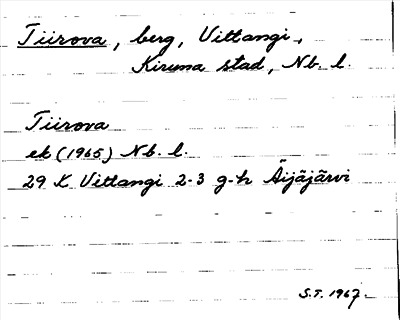 Tiirova, berg, Vittangi,
Kiruna stad, Nb. l.
Tiirova
ek (1965) Nb. l.
29 K Vittangi 2-3 g-h Äijäjärvi
S.T. 1967